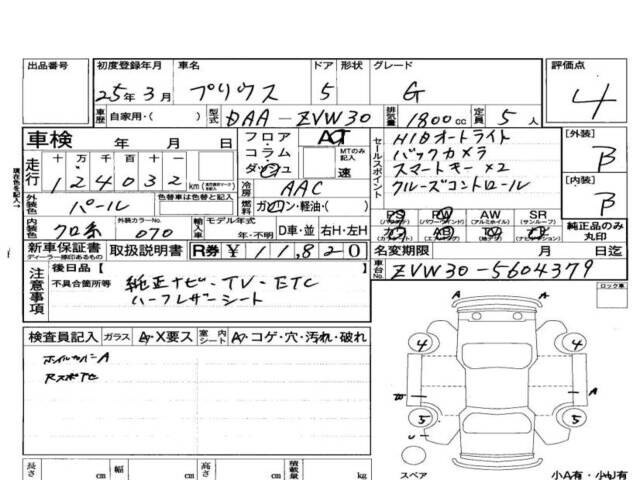 出品番号 初度登録年月 車名 ドア 形状 グレード 評価点
25年3月 プリウス 5 G 4
車歴 自家用・( ) 型式 DAA-ZVW30 排気量 1800cc 定員 5人
車検 年 月 日 フロア AT セールスポイント HIDオートライト [外装]
走行 十 万 千 百 十 一 コラム MTのみ記入 バックカメラ B
124032 km ダッシュ 速 スマートキー×2 [内装]
外装色 パール 色替車は色替と記入 冷房 AAC クルーズコントロール B
燃料 ガソリン・軽油・( ) PS PW AW SR 純正品のみ丸印
内装色 クロ系 外装カラーNo. 070 輸入車 モデル年式 年・不明 D車・並 右H・左H
新車保証書 取扱説明書 R券 ¥11,820 名変期限 月 日迄
ディーラー捺印あるもの
車台No. ZVW30-5604379
注意事項 後日品[ ] ロック車
不具合箇所等 純正ナビ・TV・ETC
ハーフレザーシート
検査員記入 ガラス A・X要ス 室内シート A・コゲ・穴・汚れ・破れ
ホイルカバーA
A A
4 4
W A
5 5
U
スペア 小A有・小U有
長さ cm 幅 cm 高さ cm 積載量 kg
現在色を記入→